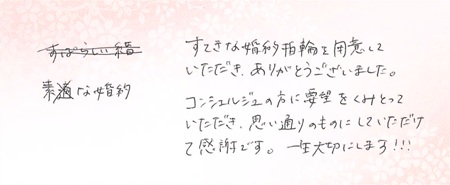 すばらしい結
素適な婚約
すてきな婚約指輪を用意して
いただき、ありがとうございました。
コンシェルジュの方に要望をくみとって
いただき、思い通りのものにしていただけ
て感謝です。一生大切にします!!!